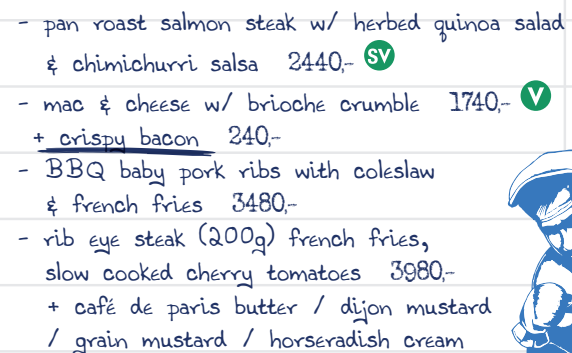 - pan roast salmon steak w/ herbed quinoa salad
& chimichurri salsa 2440,- SV
- mac & cheese w/ brioche crumble 1740,- V
+ crispy bacon 240,-
- BBQ baby pork ribs with coleslaw
& french fries 3480,-
- rib eye steak (200g) french fries,
slow cooked cherry tomatoes 3980,-
+ café de paris butter / dijon mustard
/ grain mustard / horseradish cream